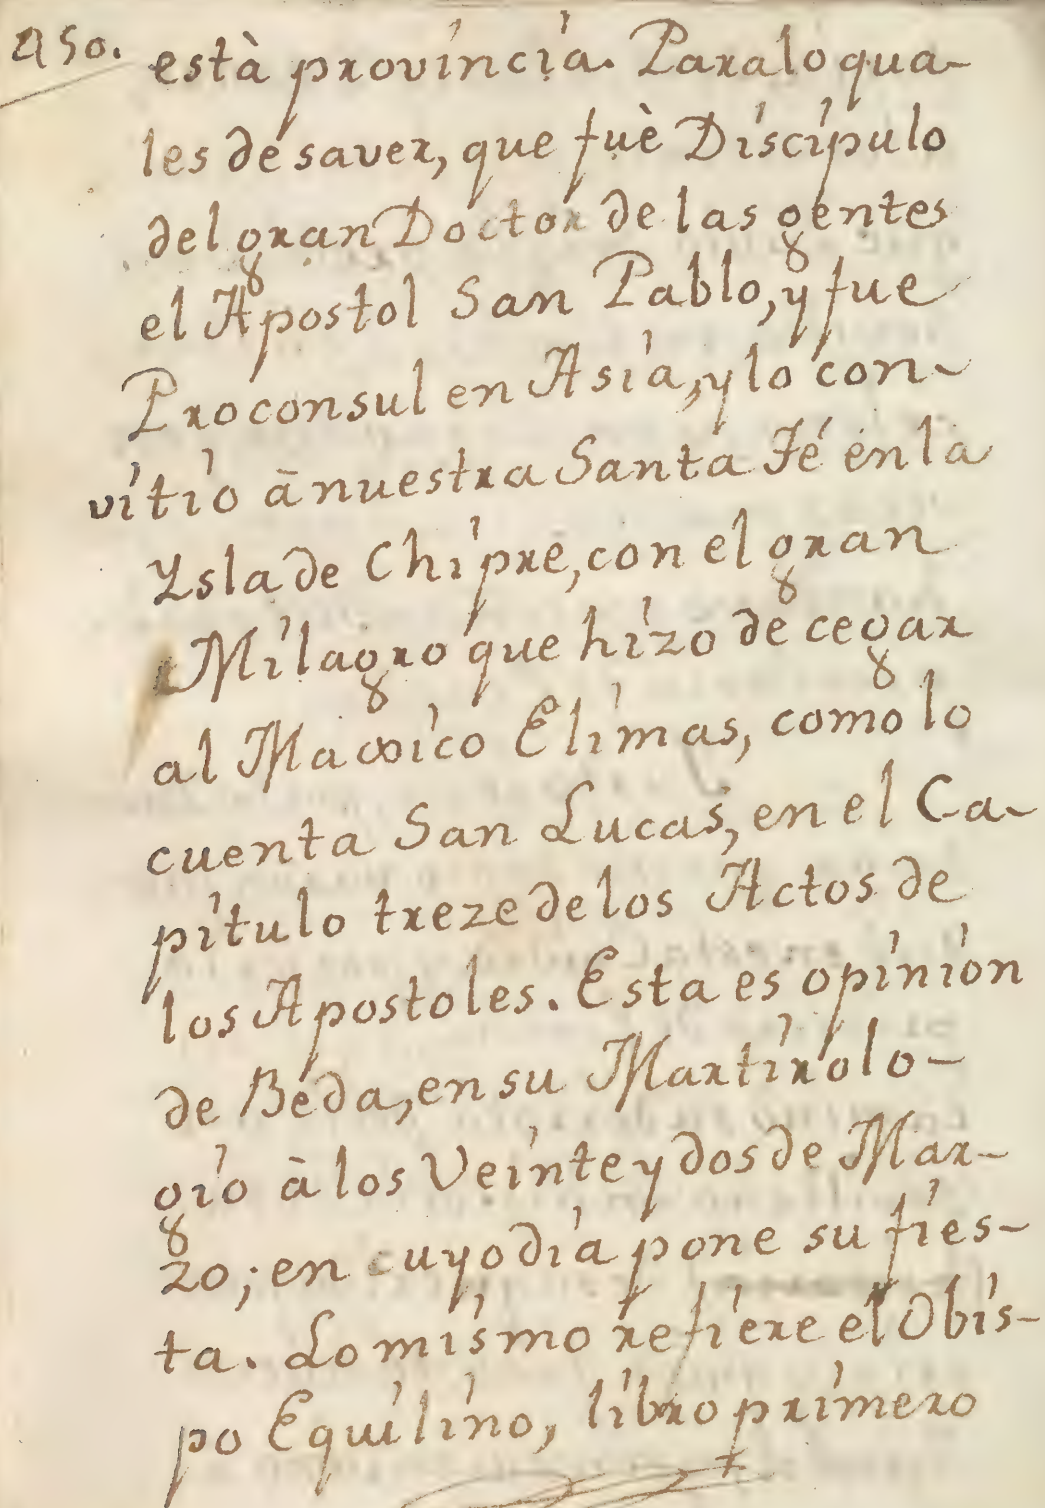 450.
està provincia. Paralo qua-
les de saver, que fuè Discipulo
del gran Doctor de las gentes
el Apostol San Pablo, y fue
Proconsul en Asia, y lo con-
vitio ā nuestra Santa Fé en la
Ysla de Chipre, con el gran
Milagro que hizo de cegar
al Maxico Elimas, como lo
cuenta San Lucas, en el Ca-
pitulo treze de los Actos de
los Apostoles. Esta es opinion
de Beda, en su Martirolo-
gio à los Veinte y dos de Mar-
zo; en cuyo dia pone su fies-
ta. Lo mismo refiere el Obis-
po Equilino, libro primero